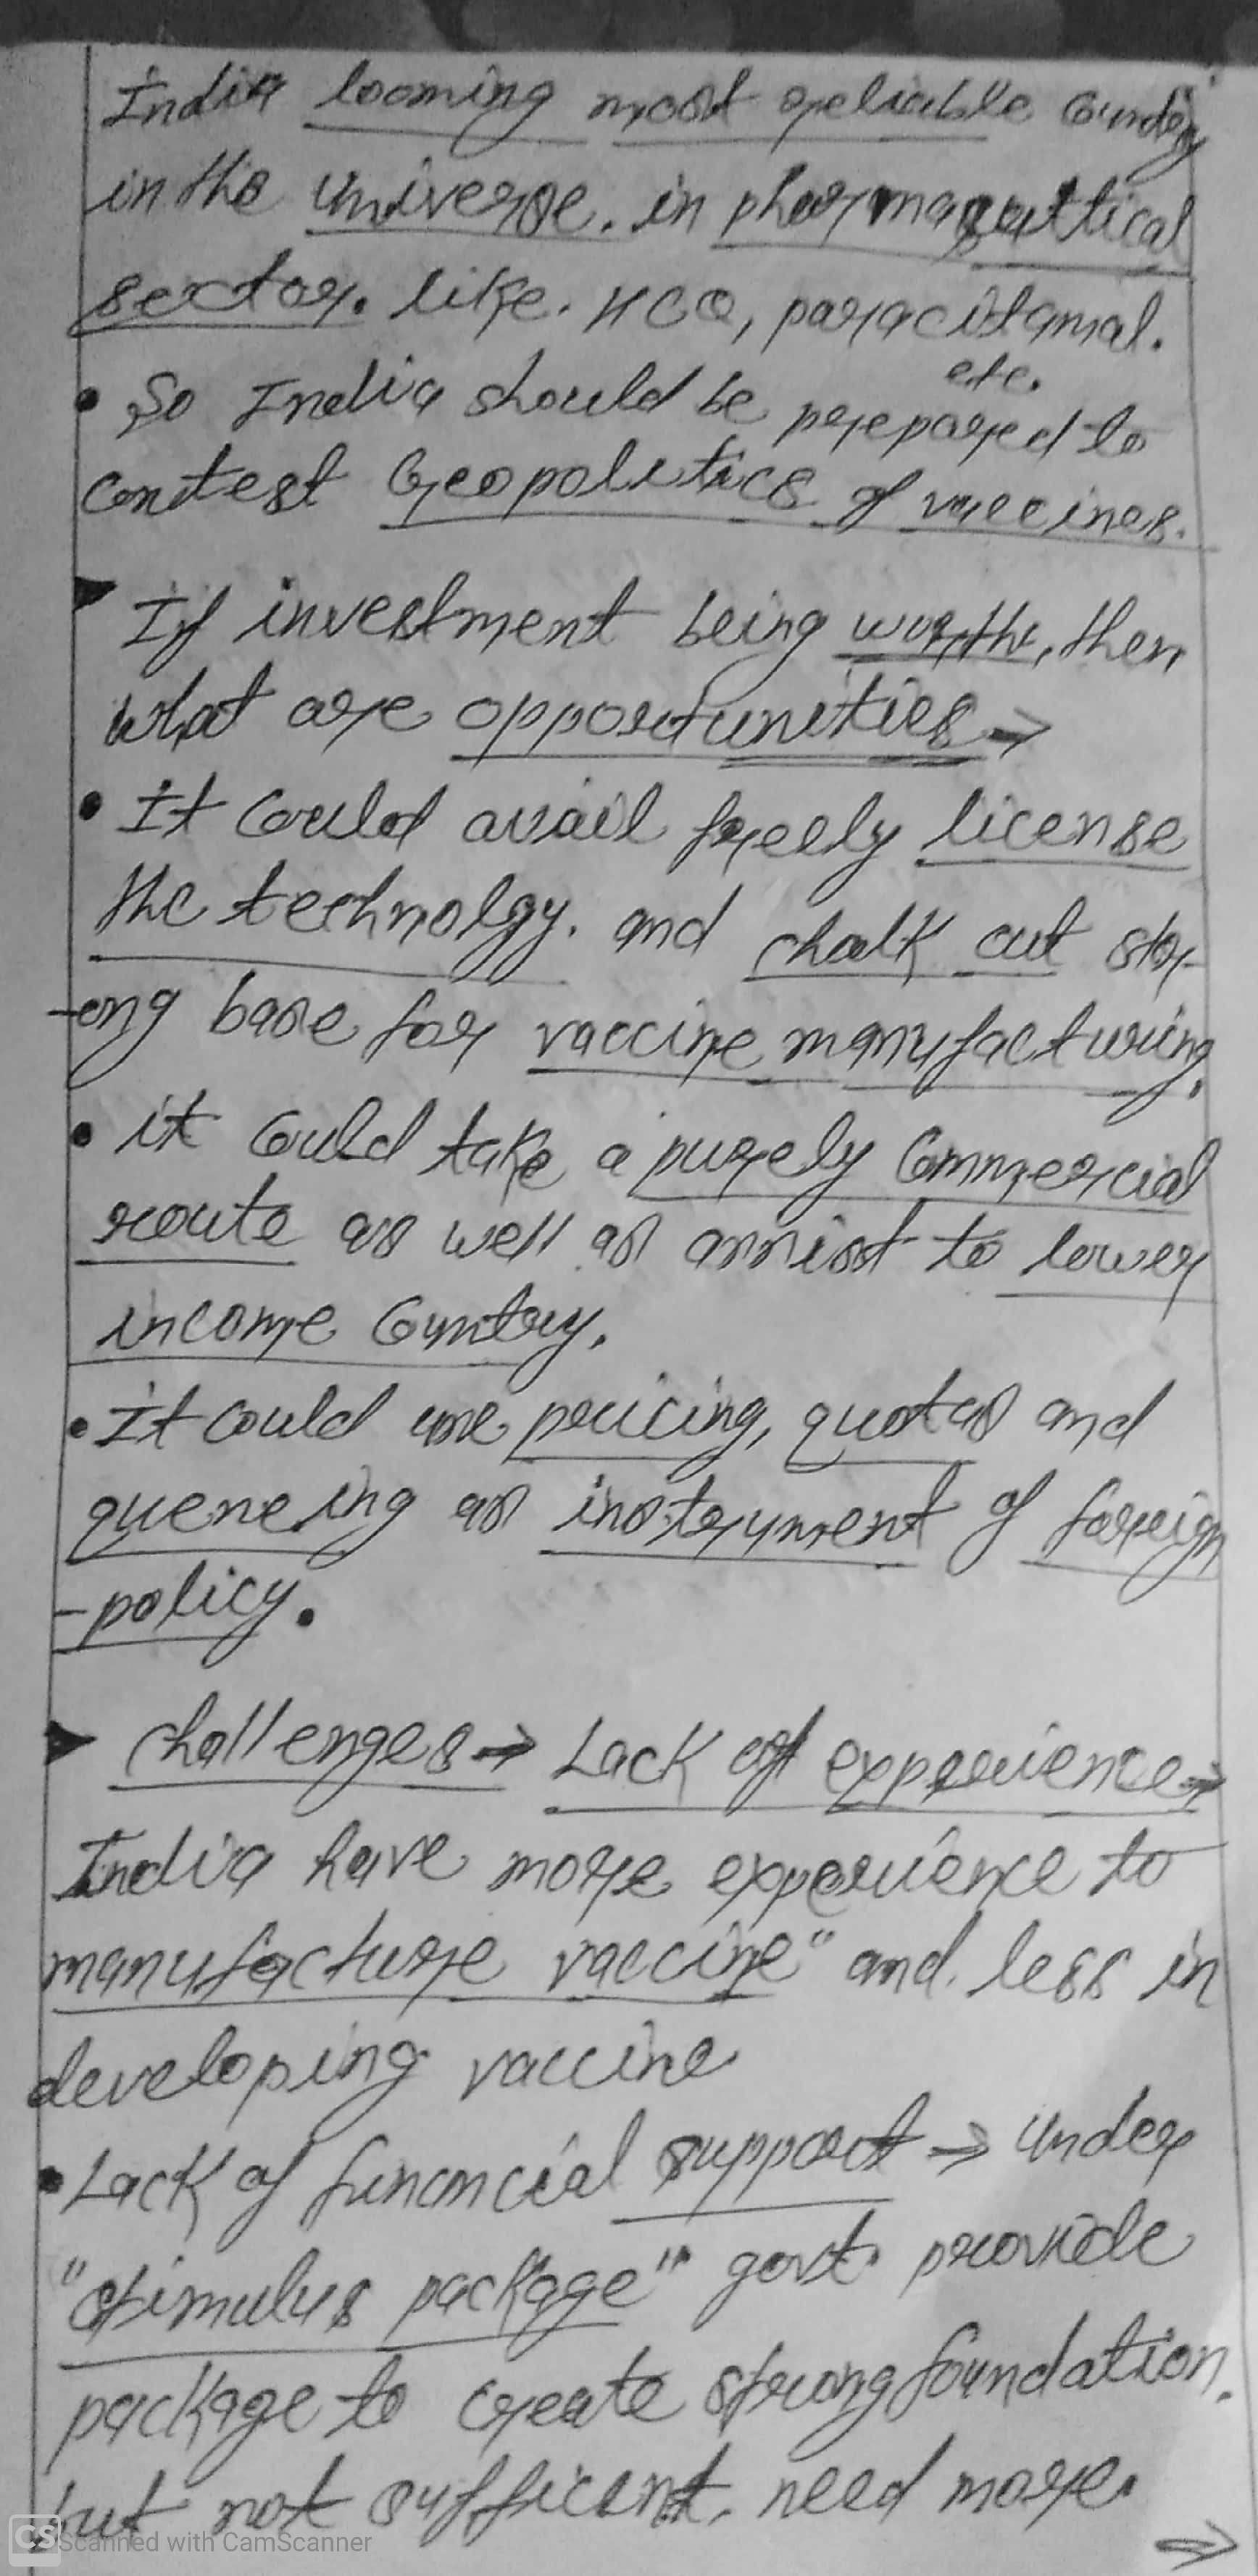 India looming most reliable Country
in the universe. in pharmaceuttical
sector. like. HCQ, paracitamal.
etc.
• So India should be prepared to
contest Geopolitics of vaccines.
If investment being worth, then
what are opportunities →
• It Could avail freely license
the technolgy. and chalk out str-
-ong base for vaccine manufacturing.
• it Could take a purely Commercial
route as well as assist to lower
income Country.
• It could use pricing, quotas and
queueing as instrument of foreign
-policy.
Challenges → Lack of experience →
India have more experience to
manufacture vaccine" and. less in
developing vaccine
• Lack of financial support → Under
"stimulus package" govt. provide
package to create strong foundation.
but not sufficient. need more.
→
CS Scanned with CamScanner